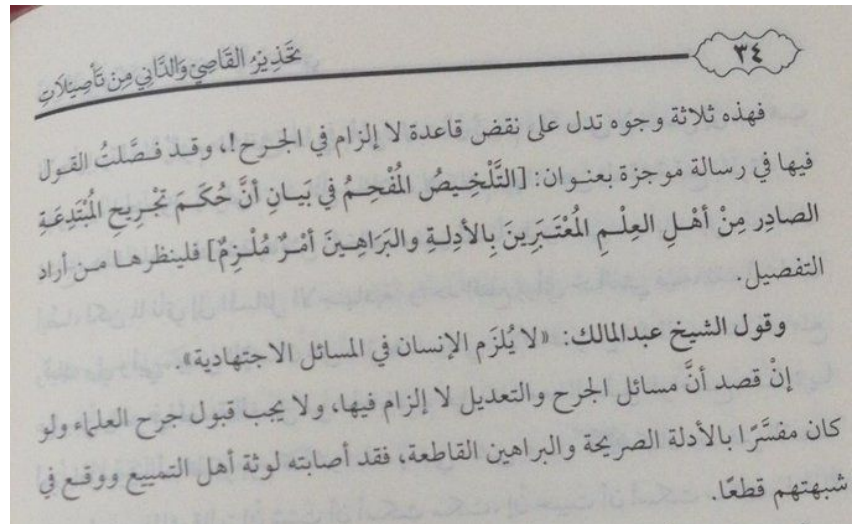 ٣٤
تَحْذِيْرُ القَاصِي وَالدَّانِي مِنْ تَأْصِيْلَاتِ
فهذه ثلاثة وجوه تدل على نقض قاعدة لا إلزام في الجرح!، وقد فصَّلتُ القول
فيها في رسالة موجزة بعنوان: [التَّلْخِيصُ المُفْحِمُ في بَيانِ أنَّ حُكَمَ تَجْرِيحِ المُبْتَدِعَةِ
الصادِر مِنْ أهْلِ العِلْمِ المُعْتَبَرِينَ بِالأدِلةِ والبَرَاهِينَ أمْرٌ مُلْزِمٌ] فلينظرها من أراد
التفصيل.
وقول الشيخ عبدالمالك: «لا يُلزَم الإنسان في المسائل الاجتهادية».
إنْ قصد أنَّ مسائل الجرح والتعديل لا إلزام فيها، ولا يجب قبول جرح العلماء ولو
كان مفسَّرًا بالأدلة الصريحة والبراهين القاطعة، فقد أصابته لوثة أهل التمييع ووقع في
شبهتهم قطعًا.